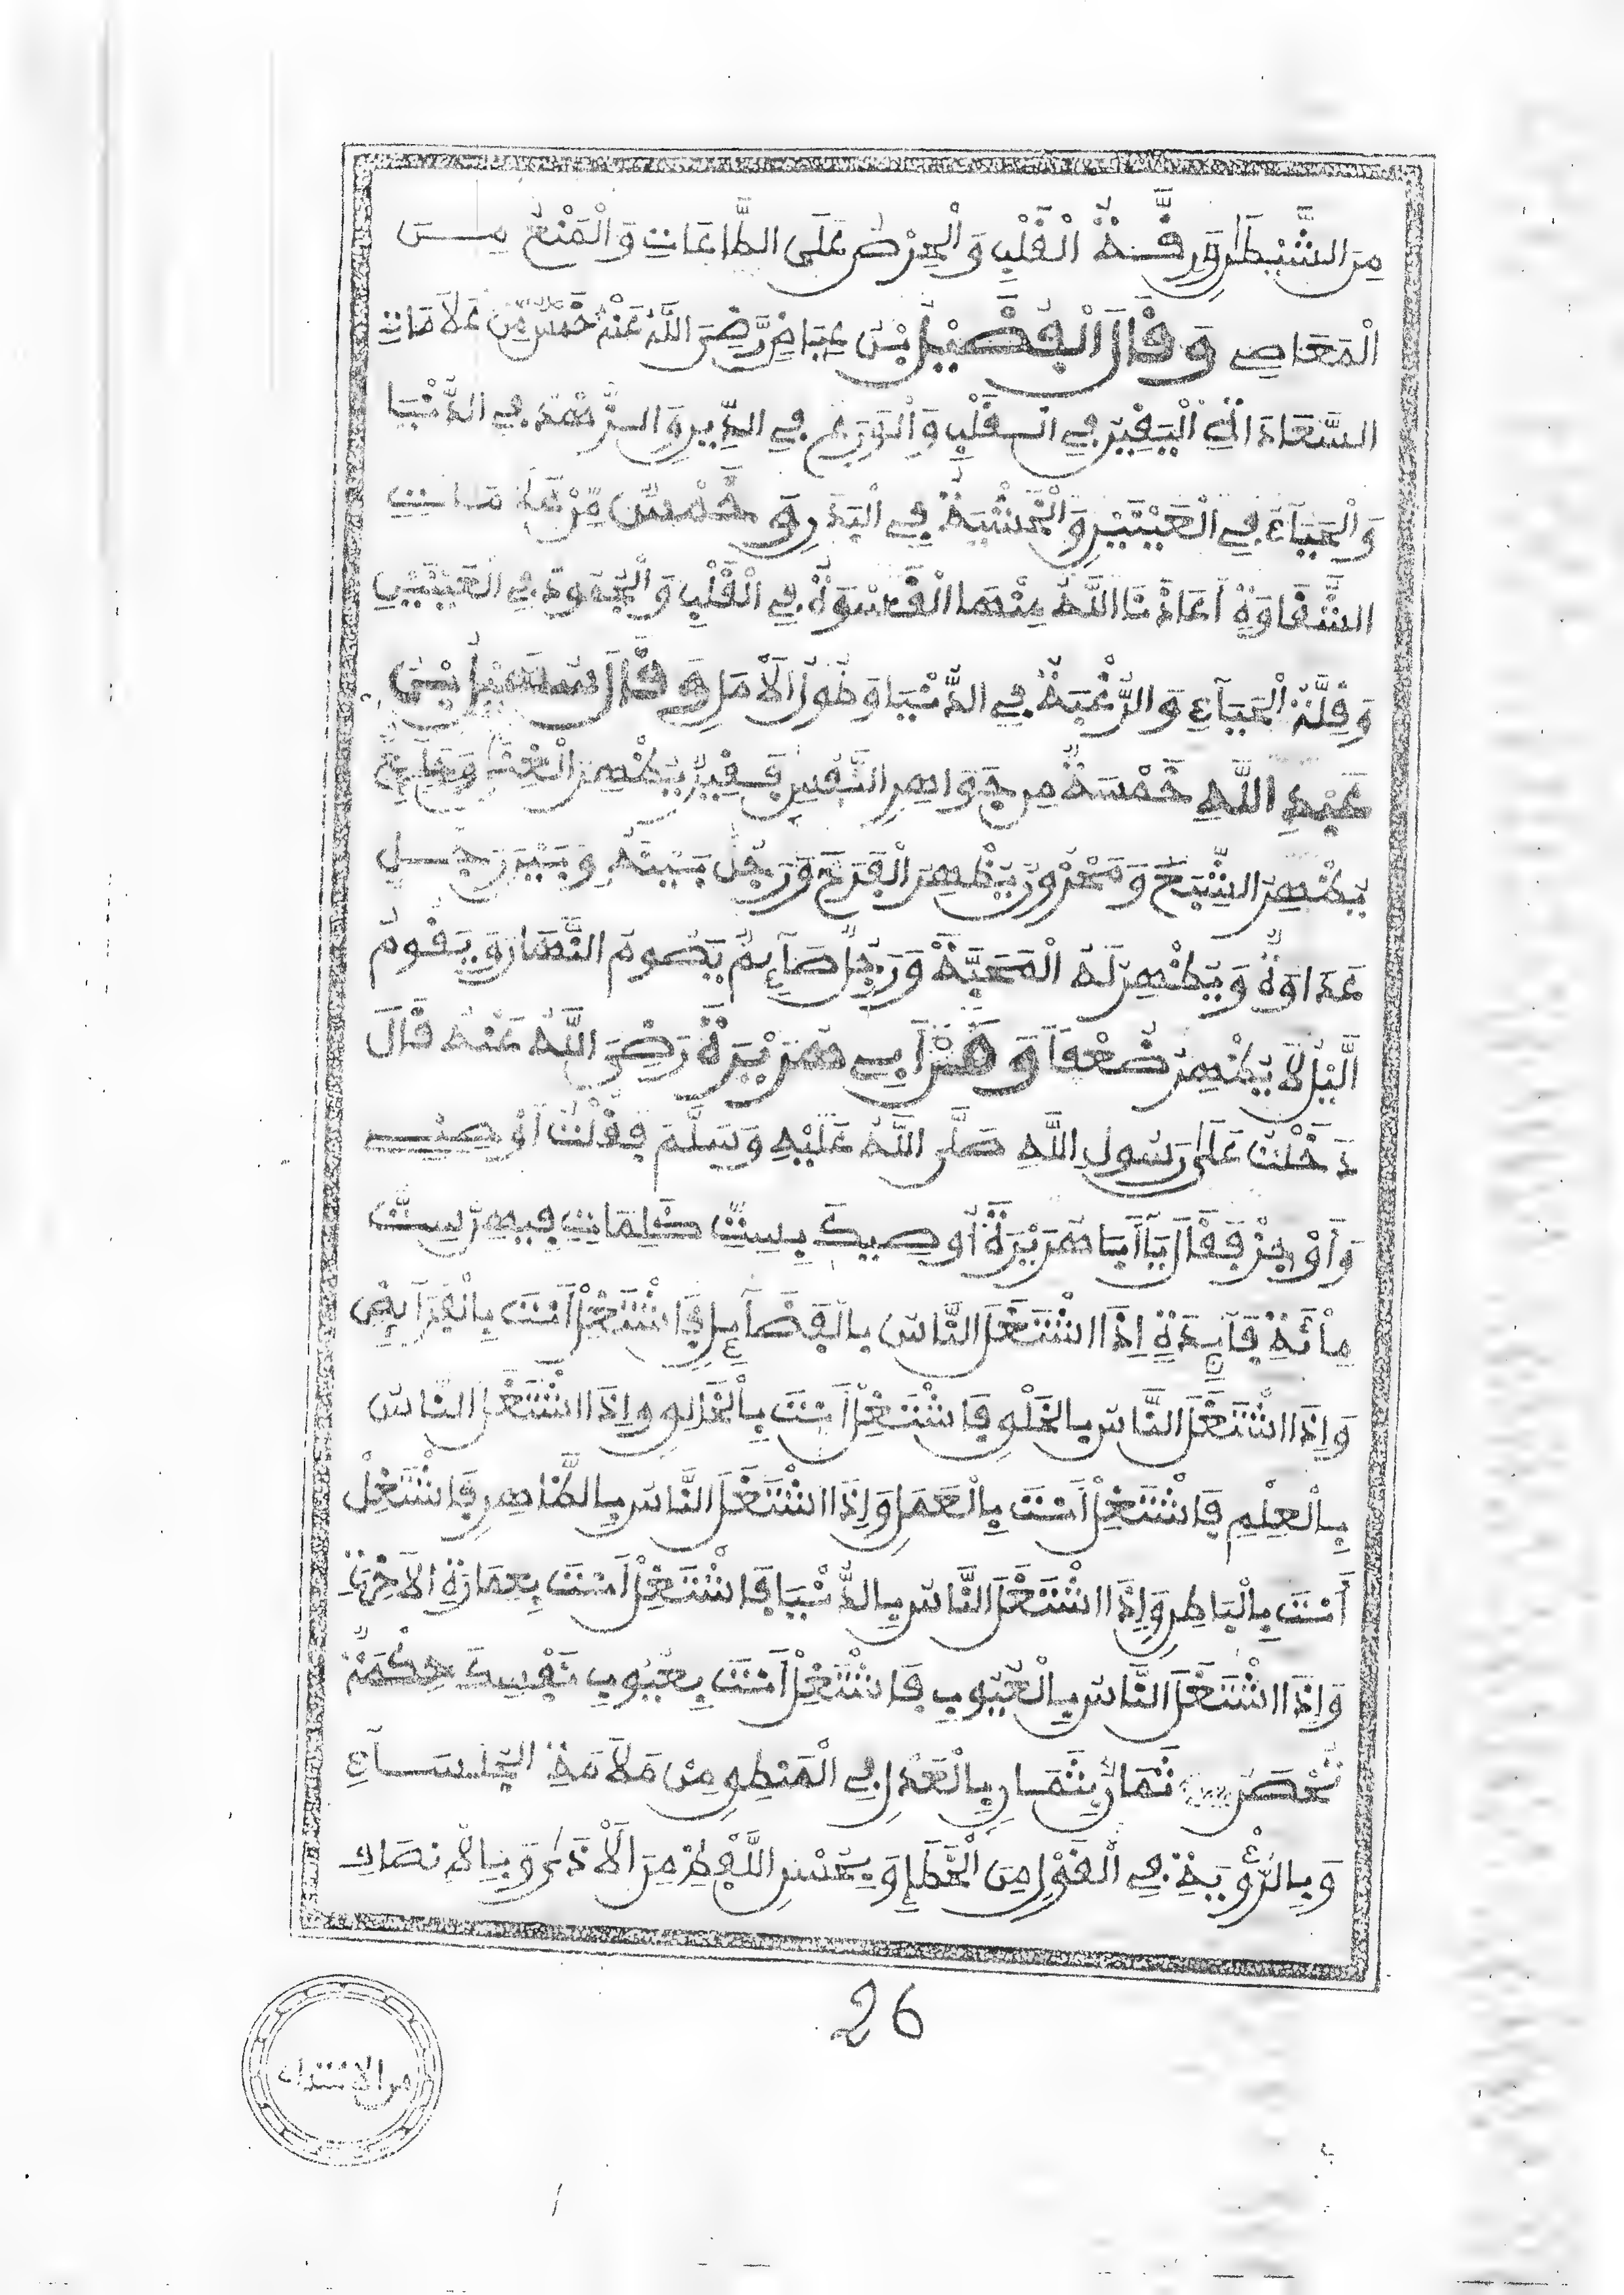 مِنَ الشَّيْطَٰنِ وَرِقَّةُ الْقَلْبِ وَالْحِرْصُ عَلَى الطَّاعَاتِ وَالْمَنْعُ مِنَ
الْمَعَاصِے وَقَالَ الْفُضَيْلُ بْنُ عِيَاضٍ رَّضِيَ اللَّهُ عَنْهُ خَمْسٌ مِّنْ عَلَامَاتِ
السَّعَادَةِ الْيَقِينُ فِي الْقَلْبِ وَالْوَرَعُ فِي الدِّينِ وَالزُّهْدُ فِي الدُّنْيَا
وَالْحَيَآءُ فِي الْعَيْنَيْنِ وَالْخَشْيَةُ فِي الْبَدَنِ وَخَمْسٌ مِّنْ عَلَامَاتِ
الشَّقَاوَةِ أَعَاذَنَا اللَّهُ مِنْهَا الْقَسْوَةُ فِي الْقَلْبِ وَالْجُمُودَةُ فِي الْعَيْنَيْنِ
وَقِلَّةُ الْحَيَآءِ وَالرَّغْبَةُ فِي الدُّنْيَا وَطُولُ الْأَمَلِ وَقَالَ سَهْلُ بْنُ
عَبْدِ اللَّهِ خَمْسَةٌ مِن جَوَاهِرِ النَّفْسِ فَقِيرٌ يُظْهِرُ الْغِنَىٰ وَجَآئِعٌ
يُظْهِرُ الشِّبَعَ وَمَحْزُونٌ يُظْهِرُ الْفَرَحَ وَرَجُلٌ بَيْنَهُ وَبَيْنَ رَجُلٍ
عَدَاوَةٌ وَيُظْهِرُ لَهُ الْمَحَبَّةَ وَرَجُلٌ صَآئِمٌ يَصُومُ النَّهَارَ وَيَقُومُ
الَّيْلَ لَا يُظْهِرُ ضُعْفاً وَعَنْ أَبِي هُرَيْرَةَ رَضِيَ اللَّهُ عَنْهُ قَالَ
دَخَلْتُ عَلَىٰ رَسُولِ اللَّهِ صَلَّى اللَّهُ عَلَيْهِ وَسَلَّمَ فَقُلْتُ أَوْصِنِے
وَأَوْجِزْ فَقَالَ يَآ أَبَا هُرَيْرَةَ أُوصِيكَ بِسِتِّ كَلِمَاتٍ فِيهِنَّ سِتُّ
مِائَةِ فَآئِدَةٍ إِذَا اشْتَغَلَ النَّاسُ بِالْفَضَآئِلِ فَاشْتَغِلْ أَنتَ بِالْفَرَآئِضِ
وَإِذَا اشْتَغَلَ النَّاسُ بِالْخَلْقِ فَاشْتَغِلْ أَنتَ بِالْخَالِقِ وَإِذَا اشْتَغَلَ النَّاسُ
بِالْعِلْمِ فَاشْتَغِلْ أَنتَ بِالْعَمَلِ وَإِذَا اشْتَغَلَ النَّاسُ بِالظَّاهِرِ فَاشْتَغِلْ
أَنتَ بِالْبَاطِنِ وَإِذَا اشْتَغَلَ النَّاسُ بِالدُّنْيَا فَاشْتَغِلْ أَنتَ بِعِمَارَةِ الْآخِرَةِ
وَإِذَا اشْتَغَلَ النَّاسُ بِالْعُيُوبِ فَاشْتَغِلْ أَنتَ بِعُيُوبِ نَفْسِكَ حِكْمَةٌ
تُحْصَنُ ثَمَانٌ بِثَمَانٍ بِالْعَدْلِ فِي الْمَنطِقِ مِنْ مَلَامَةِ الْجُلَسَآءِ
وَبِالرُّؤْيَةِ فِي الْقَوْلِ مِنَ الْخَطَإِ وَبِحُسْنِ اللَّفْظِ مِنَ الْأَذَىٰ وَبِالْإِنصَافِ
26